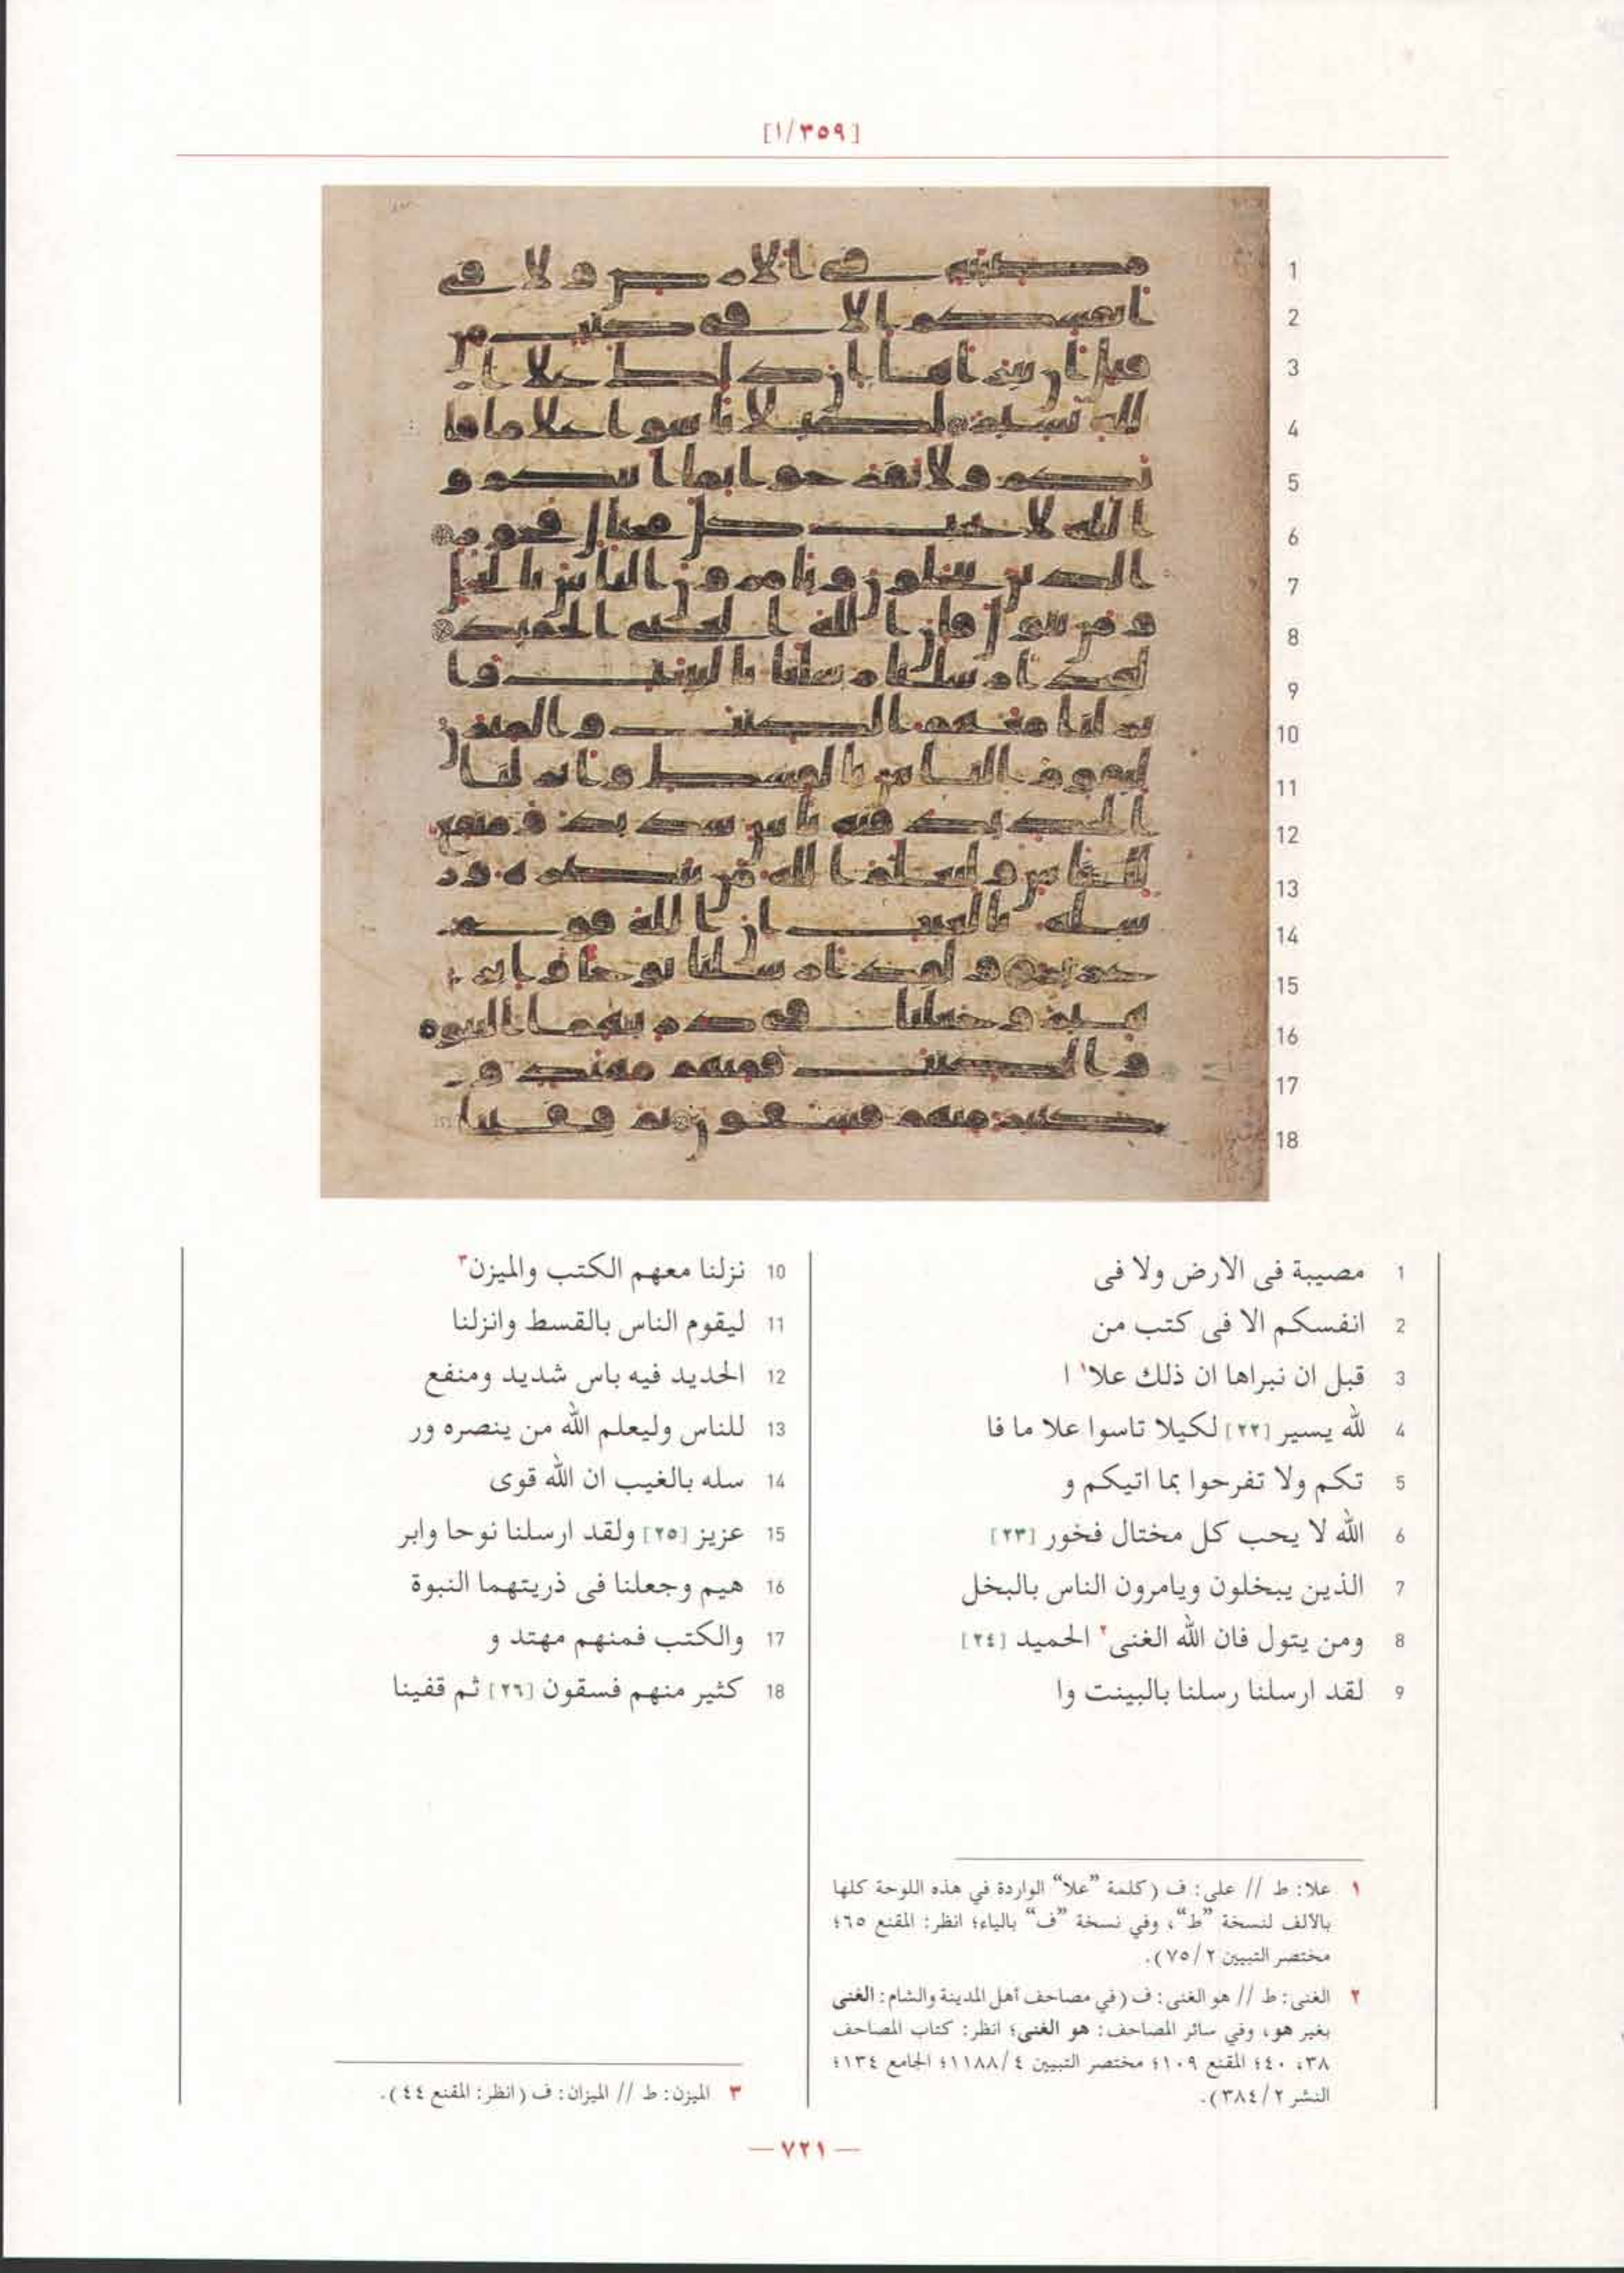 [١/٣٥٩]
1 مصيبة فى الارض ولا فى
2 انفسكم الا فى كتب من
3 قبل ان نبراها ان ذلك علا١ ا
4 لله يسير [٢٢] لكيلا تاسوا علا ما فا
5 تكم ولا تفرحوا بما اتيكم و
6 الله لا يحب كل مختال فخور [٢٣]
7 الذين يبخلون ويامرون الناس بالبخل
8 ومن يتول فان الله الغنى٢ الحميد [٢٤]
9 لقد ارسلنا رسلنا بالبينت وا
10 نزلنا معهم الكتب والميزن٣
11 ليقوم الناس بالقسط وانزلنا
12 الحديد فيه باس شديد ومنفع
13 للناس وليعلم الله من ينصره ور
14 سله بالغيب ان الله قوى
15 عزيز [٢٥] ولقد ارسلنا نوحا وابر
16 هيم وجعلنا فى ذريتهما النبوة
17 والكتب فمنهم مهتد و
18 كثير منهم فسقون [٢٦] ثم قفينا
١ علا: ط // على: ف (كلمة "علا" الواردة في هذه اللوحة كلها
بالألف لنسخة "ط"، وفي نسخة "ف" بالياء؛ انظر: المقنع ٦٥؛
مختصر التبيين ٧٥/٢).
٢ الغنى: ط // هو الغنى: ف (في مصاحف أهل المدينة والشام: الغنى
بغير هو، وفي سائر المصاحف: هو الغنى؛ انظر: كتاب المصاحف
٣٨، ٤٠؛ المقنع ١٠٩؛ مختصر التبيين ١١٨٨/٤؛ الجامع ١٣٤؛
النشر ٣٨٤/٢).
٣ الميزن: ط // الميزان: ف (انظر: المقنع ٤٤).
— ٧٢١ —